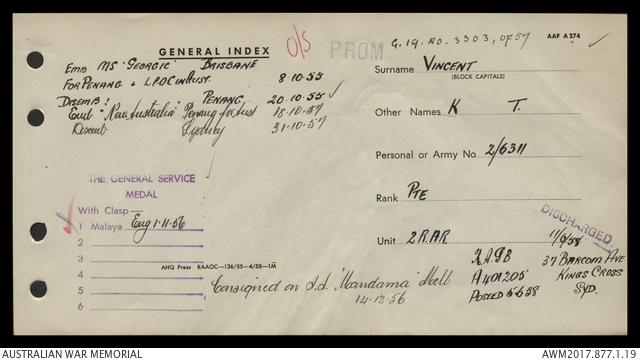 GENERAL INDEX
O/S
PROM
G.19. RO. 3303, OF 57
AAF A 274
EMB MS "GEORGIC" BRISBANE
FOR PENANG & L.P.O.C in AUST. 8-10-55
DISEMB: PENANG 20-10-55
Emb "New Australia" Penang for Aust 18-10-57
Disemb Sydney 31-10-57
Surname VINCENT
(BLOCK CAPITALS)
Other Names K T.
Personal or Army No. 2/6311
Rank PTE
Unit 2 RAR
DISCHARGED
11/6/58
37 BARCOM AVE
KINGS CROSS
SYD.
A401205
POSTED 5-6-58
THE GENERAL SERVICE
MEDAL
With Clasp
1 Malaya Eng 1-11-56
2
3
4
5
6
AHQ Press RAAOC—136/55—4/55—1M
Consigned on S.S. "Mandama" Melb
14-12-56
AUSTRALIAN WAR MEMORIAL
AWM2017.877.1.19